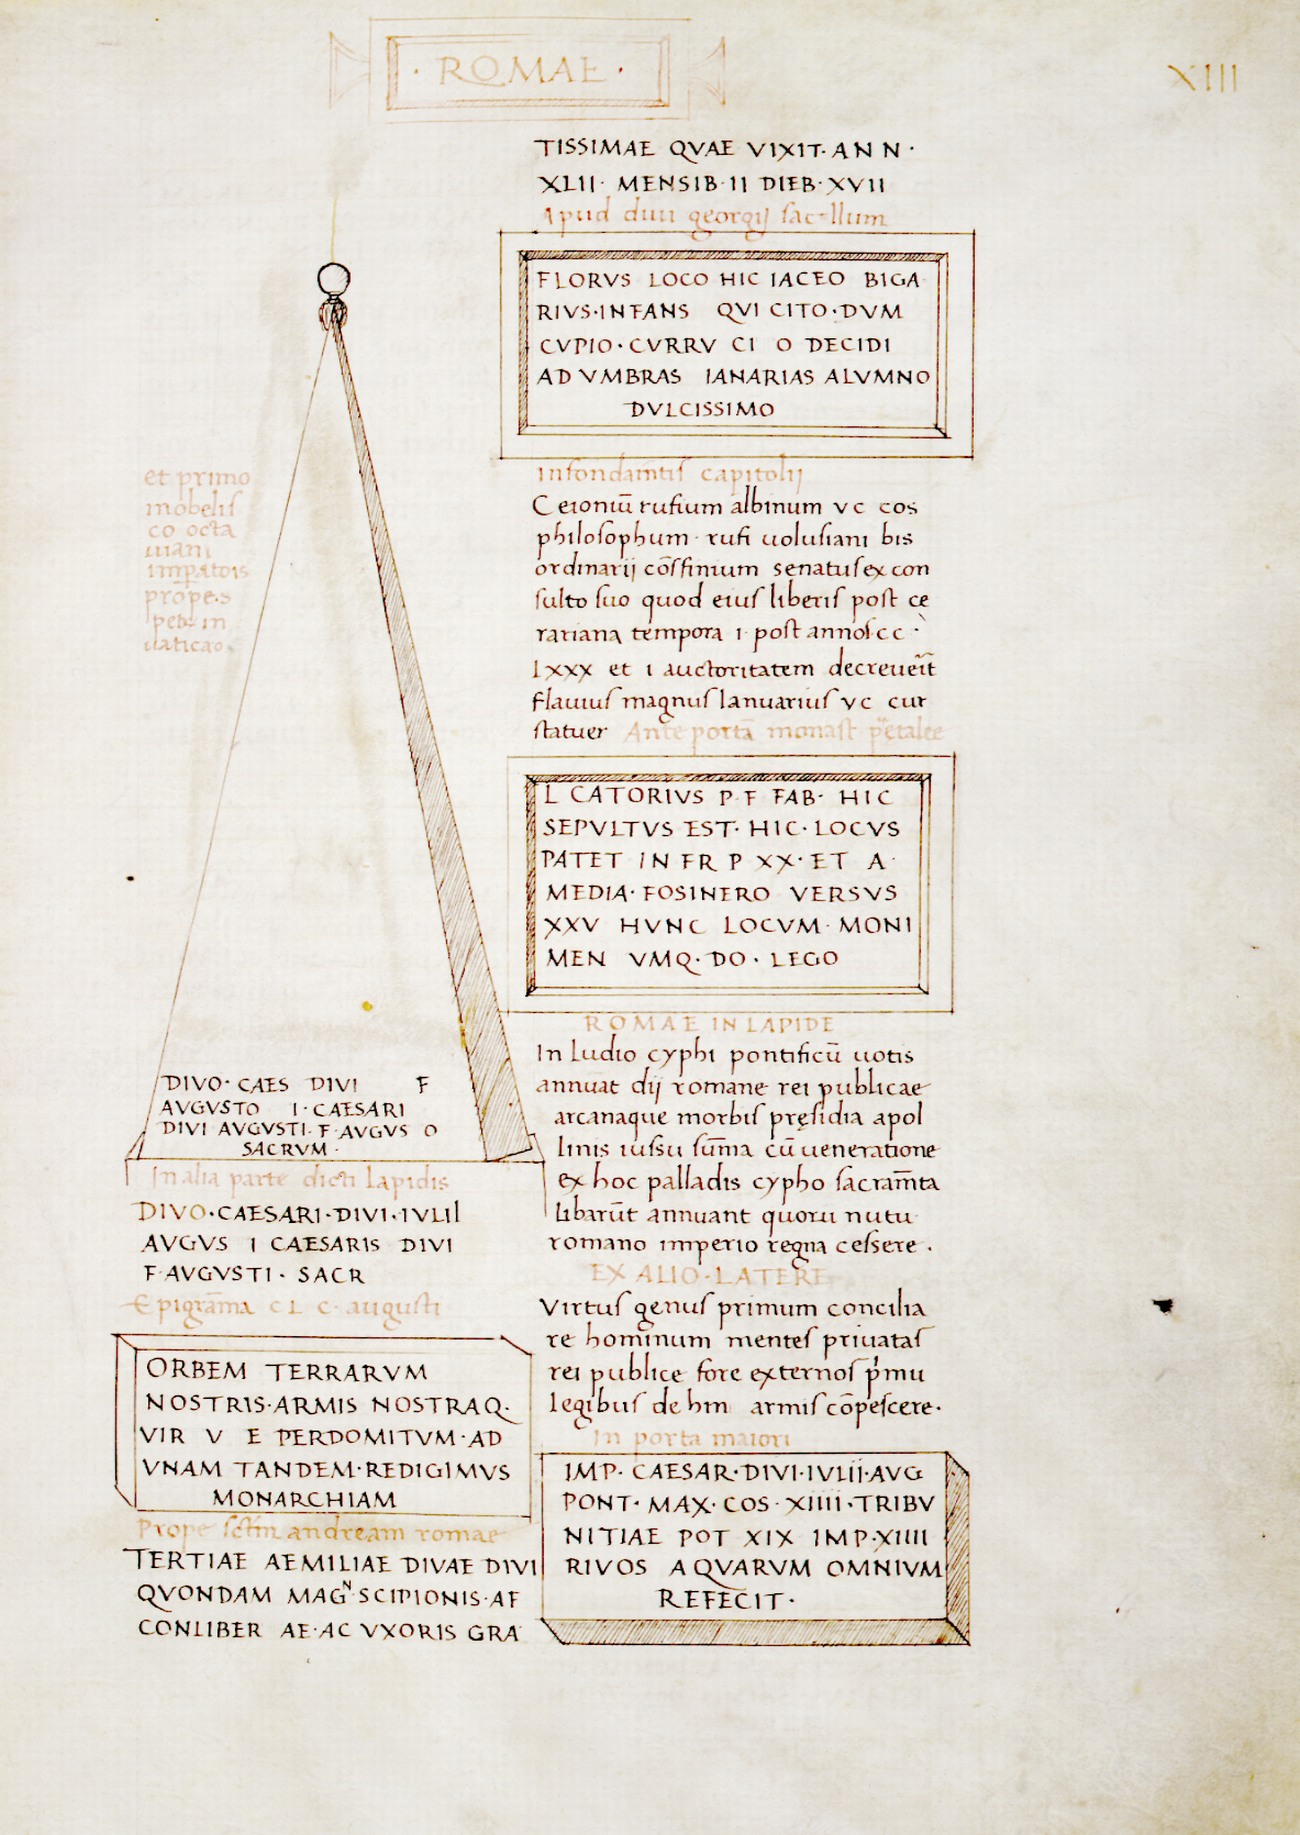 · ROMAE ·
XIII
et primo
mobelis
co octa
uiani
imp̄atois
prope·s
pet· in
uaticao·
DIVO· CAES DIVI F
AVGVSTO I· CAESARI
DIVI AVGVSTI· F· AVGVS O
SACRVM·
In alia parte dicti lapidis
DIVO·CAESARI·DIVI·IVLII
AVGVS I CAESARIS DIVI
F·AVGVSTI· SACR
Epigrama C L C· augusti
ORBEM TERRARVM
NOSTRIS·ARMIS NOSTRAQ·
VIR V E PERDOMITVM·AD
VNAM TANDEM·REDIGIMVS
MONARCHIAM
Prope sctm̄ andream romae
TERTIAE AEMILIAE DIVAE DIVI
QVONDAM MAGᴺ·SCIPIONIS·AF
CONLIBER AE·AC VXORIS GRA
TISSIMAE QVAE VIXIT·ANN·
XLII· MENSIB·II DIEB·XVII
Apud diui georgij sacellum
FLORVS LOCO HIC IACEO BIGA
RIVS·INFANS QVI CITO·DVM
CVPIO·CVRRV CI O DECIDI
AD VMBRAS IANARIAS ALVMNO
DVLCISSIMO
In fondam̄tis capitolij
Ceioniū rufium albinum vc cos
philosophum· rufi uolusiani bis
ordinarij cōsfinium senatusex con
sulto suo quod eius liberis post ce
rariana tempora i· post annos cc·
Lxxx et i auctoritatem decreueīt
flauius magnus Ianuarius vc cur
statuer Ante portā monast
L CATORIVS P·F FAB· HIC
SEPVLTVS EST· HIC·LOCVS
PATET IN FR P XX·ET A·
MEDIA·FOSINERO VERSVS
XXV HVNC LOCVM·MONI
MEN VMQ·DO· LEGO
ROMAE IN LAPIDE
In Ludio cyphi pontificū uotis
annuāt dij romane rei publicae
arcanaque morbis pręsidia apol
linis iussu sūma cū ueneratione
ex hoc palladis cypho sacram̄ta
libarūt annuant quoru nutu
romano imperio regna cessere·
EX ALIO·LATERE
Virtus genus primum concilia
re hominum mentes priuatas
rei publice fore externos p'mu
legibus de hm armis cōpescere·
In porta maiori
IMP· CAESAR·DIVI·IVLII·AVG
PONT·MAX·COS·XIIII·TRIBV
NITIAE POT XIX IMP·XIIII
RIVOS AQVARVM OMNIVM
REFECIT·